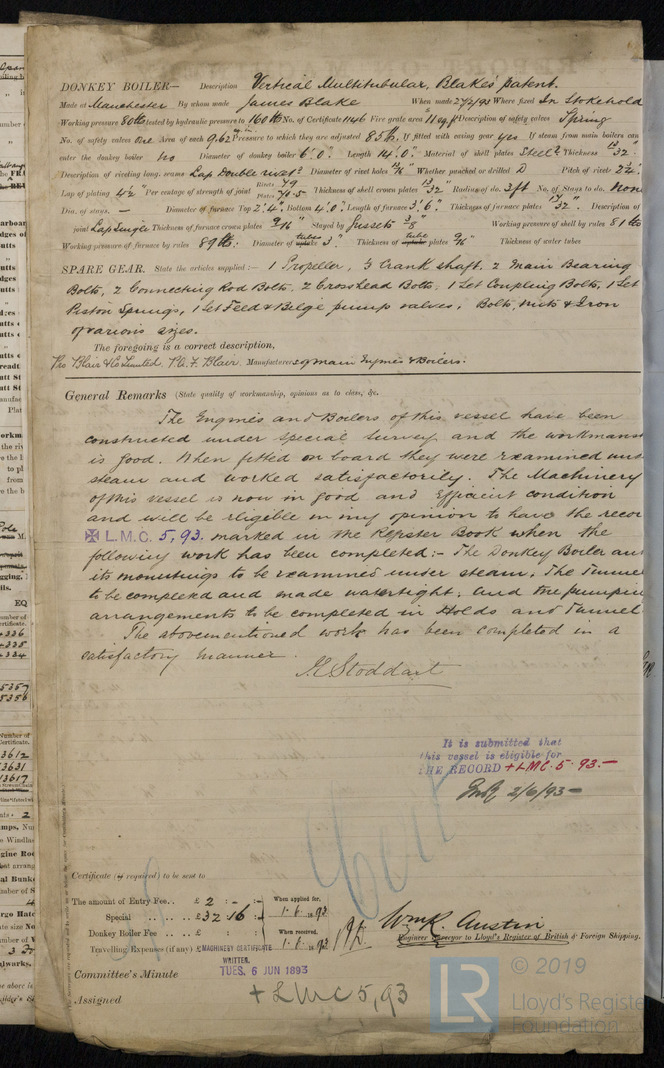 DONKEY BOILER— Description Vertical Multitubular, Blakes' patent.
Made at Manchester By whom made James Blake When made 27/2/93 Where fixed In Stokehold
Working pressure 80 lb tested by hydraulic pressure to 160 lb No. of Certificate 1146 Fire grate area 11 sq ft Description of safety valves Spring
No. of safety valves One Area of each 9.62 Pressure to which they are adjusted 85 lb. If fitted with easing gear yes If steam from main boilers can
enter the donkey boiler no Diameter of donkey boiler 6'.0" Length 14'.0" Material of shell plates Steel Thickness 13/32"
Description of riveting long. seams Lap Double rivet Diameter of rivet holes 13/16" Whether punched or drilled D Pitch of rivets 2¾"
Lap of plating 4½" Per centage of strength of joint Rivets 79 Plates 70.5 Thickness of shell crown plates 13/32 Radius of do. 3 ft No. of Stays to do. None
Dia. of stays. — Diameter of furnace Top 2'.4" Bottom 4'.0" Length of furnace 3'.6" Thickness of furnace plates 17/32" Description of
joint Lap Single Thickness of furnace crown plates 9/16" Stayed by Gussets 3/8" Working pressure of shell by rules 81 lbs
Working pressure of furnace by rules 89 lbs. Diameter of uptake tubes 3" Thickness of uptake tube plates 9/16 Thickness of water tubes
SPARE GEAR. State the articles supplied:— 1 Propeller, ⅓ Crank shaft, 2 Main Bearing
Bolts, 2 Connecting Rod Bolts, 2 Crosshead Bolts, 1 Set Coupling Bolts, 1 Set
Piston Springs, 1 Set Feed & Bilge pump valves, Bolts, nuts & Iron
of various sizes.
The foregoing is a correct description,
Pro Blair & Co Limited, G. F. Blair Manufacturers of main Engines & Boilers.
General Remarks (State quality of workmanship, opinions as to class, &c.
The Engines and Boilers of this vessel have been
constructed under Special Survey and the workmans
is good. When fitted on board they were examined und
steam and worked satisfactorily. The Machinery
of this vessel is now in good and efficient condition
and will be eligible in my opinion to have the recor
✠ L.M.C. 5.93. marked in the Register Book when the
following work has been completed:- The Donkey Boiler an
its mountings to be examined under steam. The Tunnel
to be completed and made watertight. And the pumpin
arrangements to be completed in Holds and Tunnel
The abovementioned work has been completed in a
satisfactory manner.
J.E. Stoddart
It is submitted that
this vessel is eligible for
THE RECORD + LMC. 5. 93.—
2/6/93—
Cert
Certificate (if required) to be sent to
The amount of Entry Fee.. £ 2 : - : - When applied for,
Special .. .. £ 32 : 16 : - 1. 6. 1893
Donkey Boiler Fee .. .. £ : : When received,
Travelling Expenses (if any) £ 1. 6. 1893
MACHINERY CERTIFICATE
WRITTEN.
Wm R. Austin
Engineer Surveyor to Lloyd's Register of British & Foreign Shipping.
Committee's Minute TUES. 6 JUN 1893
Assigned + LMC 5,93
LR © 2019
Lloyd's Registe
Foundation